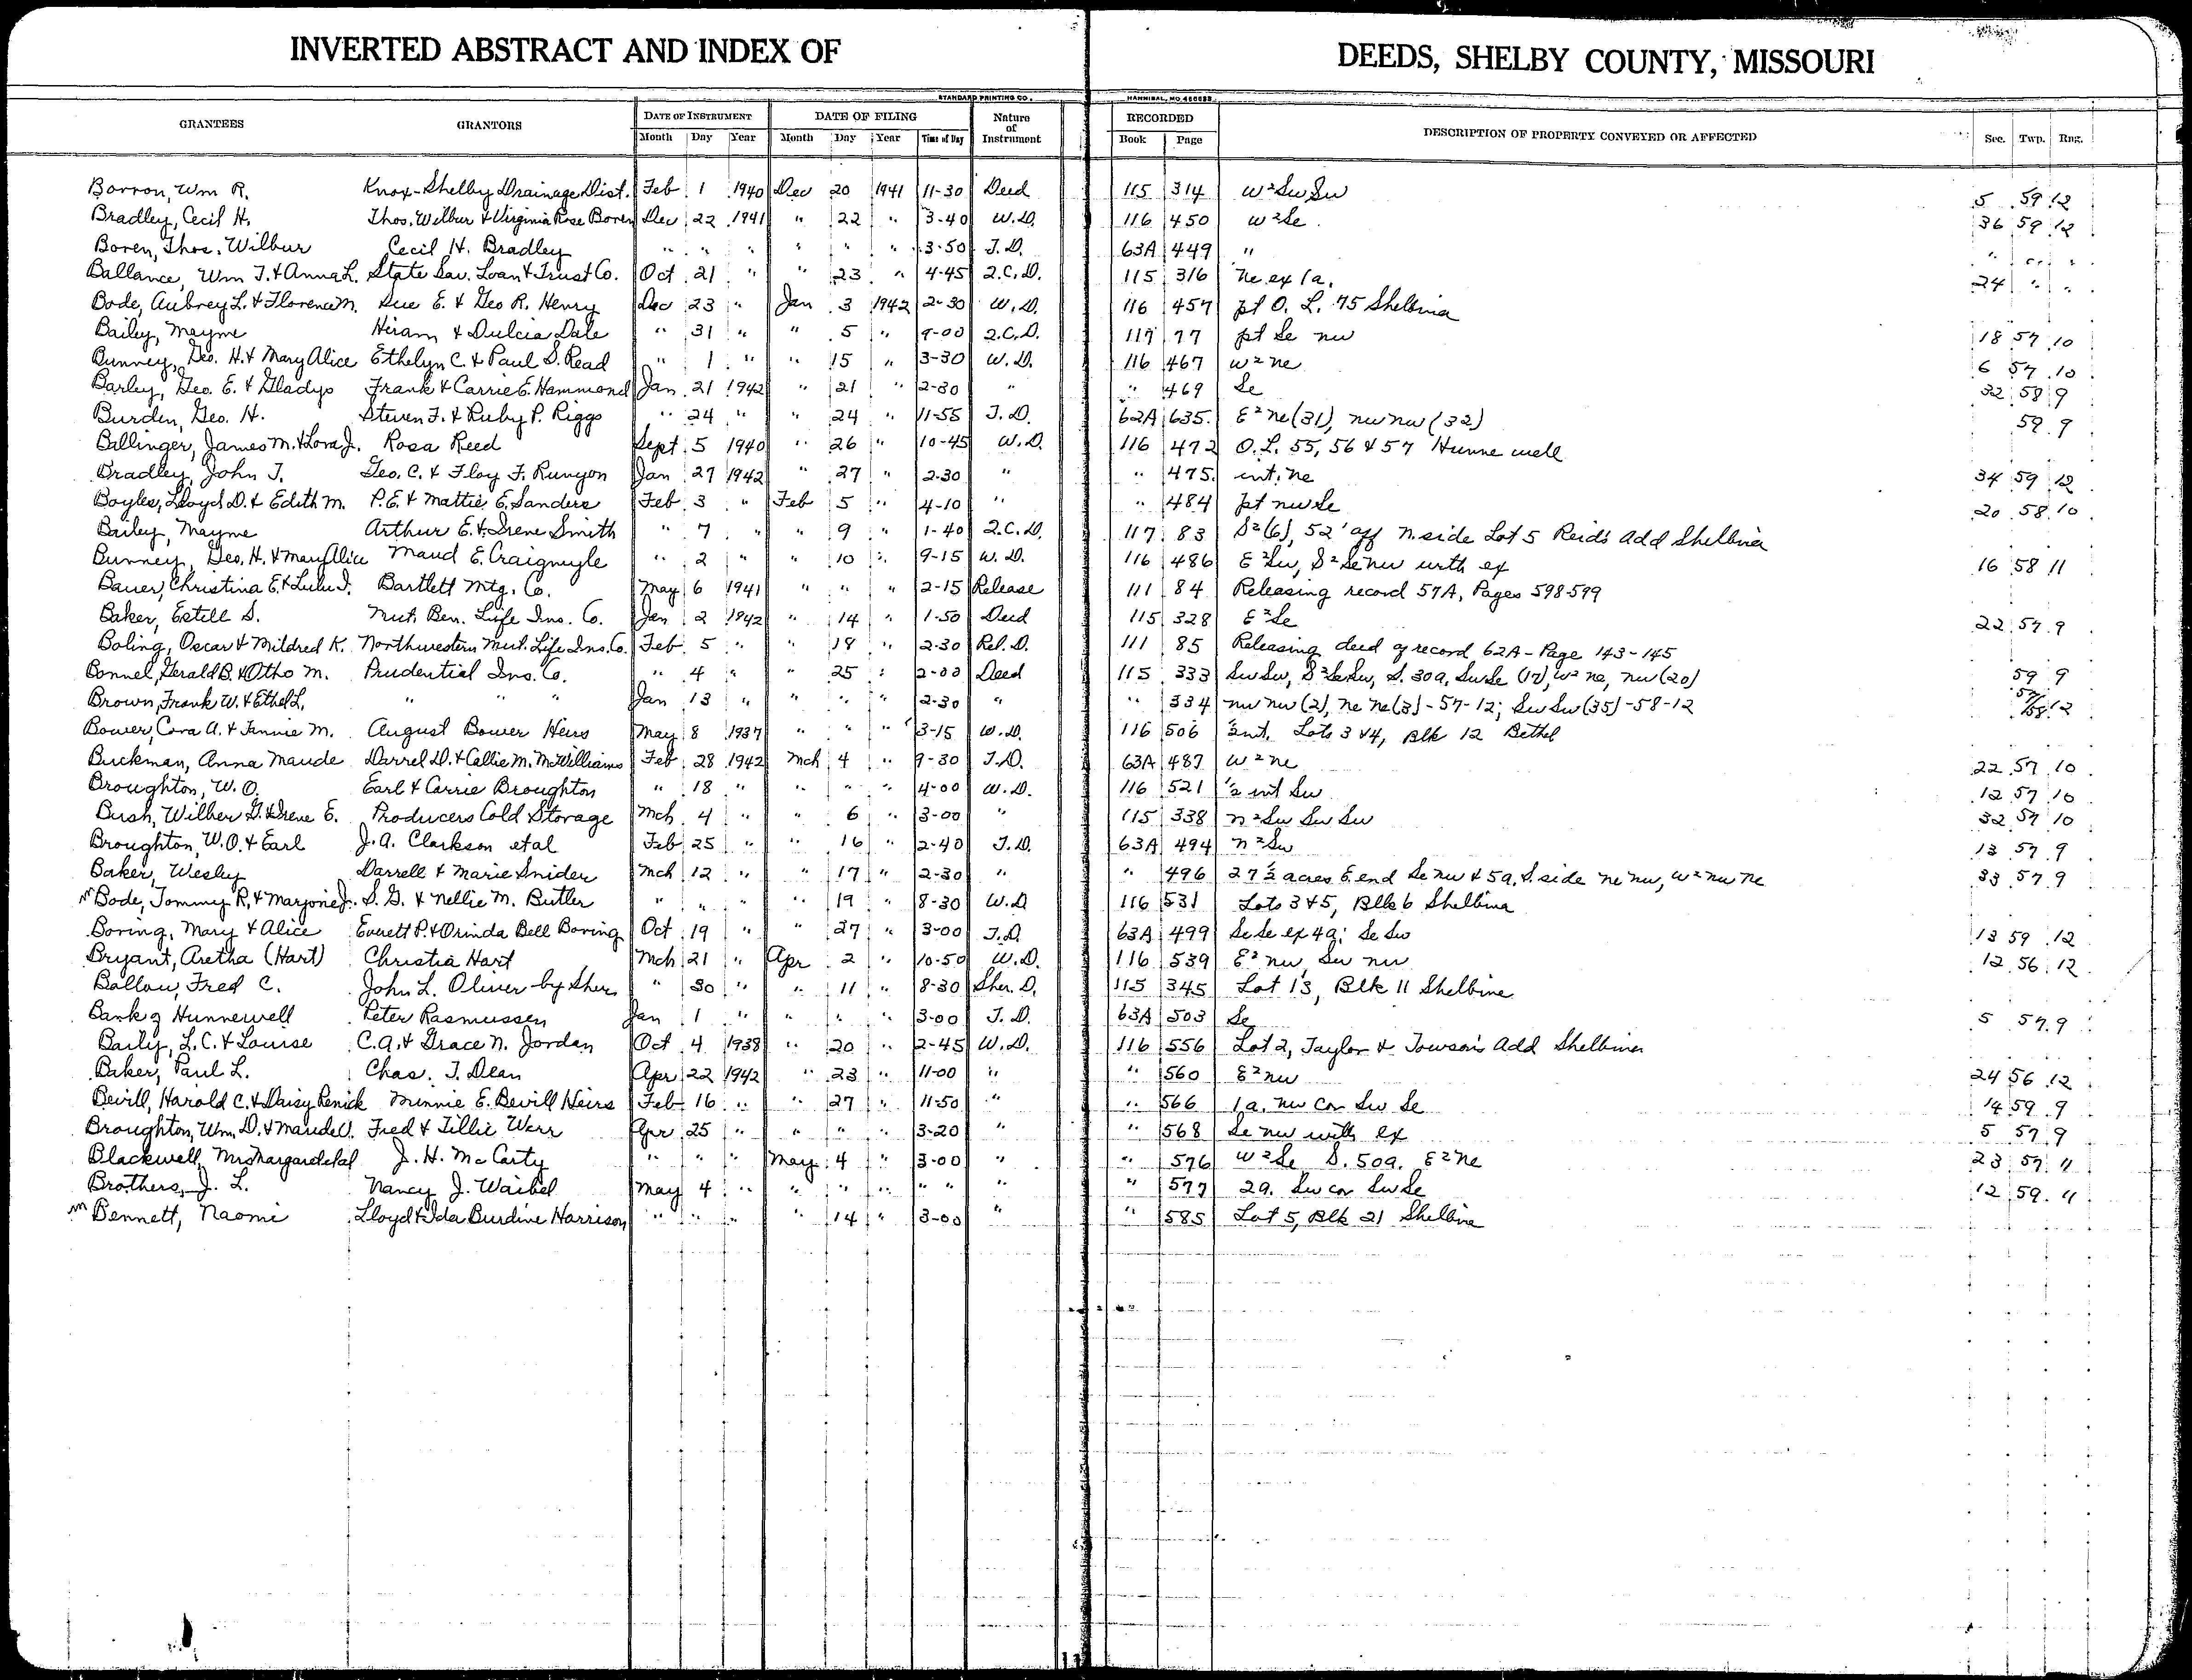 INVERTED ABSTRACT AND INDEX OF DEEDS, SHELBY COUNTY, MISSOURI
STANDARD PRINTING CO. HANNIBAL, MO.
GRANTEES GRANTORS DATE OF INSTRUMENT DATE OF FILING Nature of Instrument RECORDED DESCRIPTION OF PROPERTY CONVEYED OR AFFECTED Sec. Twp. Rng.
Month Day Year Month Day Year Time of Day Book Page
Borron, Wm R. Knox-Shelby Drainage Dist. Feb 1 1940 Dec 20 1941 11-30 Deed 115 314 W² Sw Sw 5 59 12
Bradley, Cecil H. Thos. Wilbur & Virginia Rose Boren Dec 22 1941 " 22 " 3-40 W.D. 116 450 W² Se 36 59 12
Boren, Thos. Wilbur Cecil H. Bradley " " " " " " 3-50 T.D. 63A 449 " " " "
Ballance, Wm T. & Anna L. State Sav. Loan & Trust Co. Oct 21 " " 23 " 4-45 Q.C.D. 115 316 Ne ex 1a. 24 " "
Bode, Aubrey L. & Florence M. Sue E. & Geo R. Henry Dec 23 " Jan 3 1942 2-30 W.D. 116 457 pt O. L. 75 Shelbina
Bailey, Mayme Hiram & Dulcia Dale " 31 " " 5 " 9-00 Q.C.D. 117 77 pt Se nw 18 57 10
Bunney, Geo. H. & Mary Alice Ethelyn C. & Paul S. Read " 1 " " 15 " 3-30 W.D. 116 467 W² ne 6 57 10
Barley, Geo. E. & Gladys Frank & Carrie E. Hammond Jan 21 1942 " 21 " 2-30 " " 469 Se 32 58 9
Burden, Geo. H. Steven F. & Ruby P. Riggs " 24 " " 24 " 11-55 T.D. 62A 635 E² ne (31), nw nw (32) 59 9
Ballinger, James M. & Lora J. Rosa Reed Sept 5 1940 " 26 " 10-45 W.D. 116 472 O.L. 55, 56 & 57 Hunnewell
Bradley, John T. Geo. C. & Floy F. Runyon Jan 27 1942 " 27 " 2-30 " " 475 int. ne 34 59 12
Boyles, Lloyd D. & Edith M. P.E. & Mattie E. Sanders Feb 3 " Feb 5 " 4-10 " " 484 pt nw Se 20 58 10
Bailey, Mayme Arthur E. & Irene Smith " 7 " " 9 " 1-40 Q.C.D. 117 83 S² (6), 52' off N. side Lot 5 Reid's Add Shelbina
Bunney, Geo. H. & Mary Alice Maud E. Craigmyle " 2 " " 10 " 9-15 W.D. 116 486 E² Sw, S² Se nw with ex 16 58 11
Bauer, Christina E. & Lulu I. Bartlett Mtg. Co. May 6 1941 " " " 2-15 Release 111 84 Releasing record 57A, Pages 598-599
Baker, Estill S. Mut. Ben. Life Ins. Co. Jan 2 1942 " 14 " 1-50 Deed 115 328 E² Se 22 57 9
Boling, Oscar & Mildred K. Northwestern Mut. Life Ins. Co. Feb 5 " " 18 " 2-30 Rel. D. 111 85 Releasing deed of record 62A-Page 143-145
Bonnel, Gerald B. & Otho M. Prudential Ins. Co. " 4 " " 25 " 2-00 Deed 115 333 Sw Sw, S² Se Sw, S. 30a, Sw Se (17), W² ne, nw (20) 59 9
Brown, Frank W. & Ethel L. " " Jan 13 " " " " 2-30 " " 334 nw nw (2), ne ne (3)-57-12; Sw Sw (35)-58-12 57/58 12
Bower, Cora A. & Fannie M. August Bower Heirs May 8 1937 " " " 3-15 W.D. 116 506 int. Lots 3 & 4, Blk 12 Bethel
Buckman, Anna Maude Darrel D. & Callie M. McWilliams Feb 28 1942 Mch 4 " 9-30 T.D. 63A 487 W² ne 22 57 10
Broughton, W. O. Earl & Carrie Broughton " 18 " " " " 4-00 W.D. 116 521 ½ int Sw 12 57 10
Bush, Wilber G. & Irene E. Producers Cold Storage Mch 4 " " 6 " 3-00 " 115 338 N² Sw Sw Sw 32 57 10
Broughton, W.O. & Earl J.A. Clarkson etal Feb 25 " " 16 " 2-40 T.D. 63A 494 N² Sw 13 57 9
Baker, Wesley Darrell & Marie Snider Mch 12 " " 17 " 2-30 " " 496 27½ acres E. end Se nw & 5a. S. side ne nw, W² nw ne 33 57 9
Bode, Tommy R. & Marjorie J. S. G. & Nellie M. Butler " " " " 19 " 8-30 W.D 116 531 Lots 3 & 5, Blk 6 Shelbina
Boring, Mary & Alice Everett P. & Orinda Bell Boring Oct 19 " " 27 " 3-00 T.D. 63A 499 Se Se ex 4a; Se Sw 13 59 12
Bryant, Aretha (Hart) Christia Hart Mch 21 " Apr 2 " 10-50 W.D. 116 539 E² nw, Sw nw 12 56 12
Ballow, Fred C. John L. Oliver by Sher. " 30 " " 11 " 8-30 Sher. D. 115 345 Lot 13, Blk 11 Shelbina
Bank of Hunnewell Peter Rasmussen Jan 1 " " " " 3-00 T.D. 63A 503 Se 5 57 9
Baily, L.C. & Louise C.A. & Grace N. Jordan Oct 4 1938 " 20 " 2-45 W.D. 116 556 Lot 2, Taylor & Towson's Add Shelbina
Baker, Paul L. Chas. T. Dean Apr 22 1942 " 23 " 11-00 " " 560 E² nw 24 56 12
Bevill, Harold C. & Daisy Renick Minnie E. Bevill Heirs Feb 16 " " 27 " 11-50 " " 566 1a. nw cor Sw Se 14 59 9
Broughton, Wm. D. & Maude V. Fred & Tillie Werr Apr 25 " " " " 3-20 " " 568 Se nw with ex 5 57 9
Blackwell, Mrs Margaret etal J. H. McCarty " " " May 4 " 3-00 " " 576 W² Se S. 50a. E² Ne 23 57 11
Brothers, J. L. Nancy J. Waibel May 4 " " " " " " " " 577 2a. Sw cor Sw Se 12 59 11
Bennett, Naomi Lloyd & Ida Burdine Harrison " " " " 14 " 3-00 " " 585 Lot 5, Blk 21 Shelbina